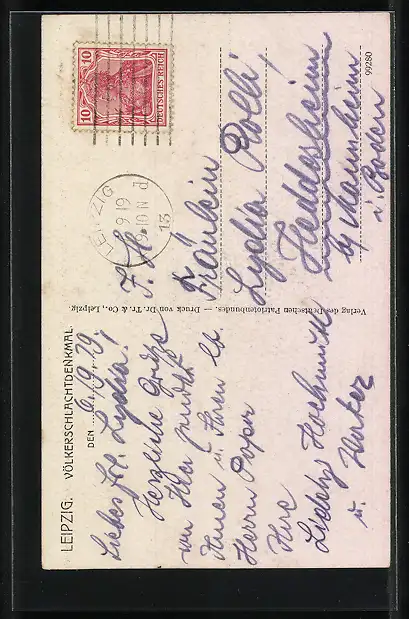 LEIPZIG. VÖLKERSCHLACHTDENKMAL.
DEN 6/9/19
Liebes Frl. Lydia!
Herzliche Grüße
von hier sendet
Ihnen u. Ihren lb.
Herrn Papa
Ihre
Liddy Hochmuth
u.
Verlag des Deutschen Patriotenbundes. — Druck von Dr. Tr. & Co., Leipzig.
10 DEUTSCHES REICH 10
LEIPZIG
9 19
9-10 N
13
d
Fräulein
Lydia
Heddesheim
b/ Mannheim
i. Baden
99280